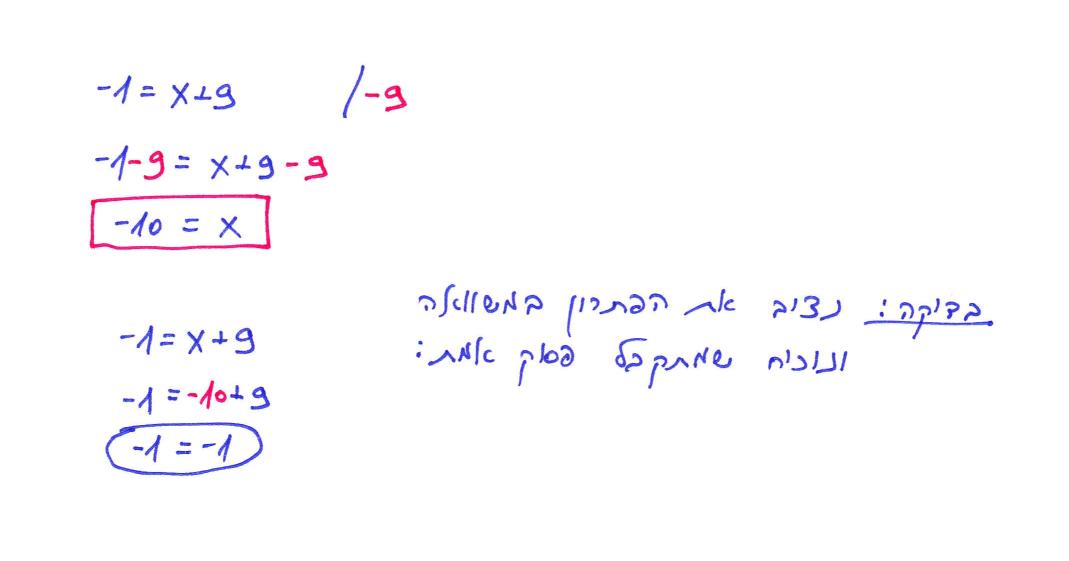 -1 = x+9 /-9
-1-9 = x+9-9
-10 = x
בדיקה: נציב את הפתרון במשוואה
ונוכיח שמתקבל פסוק אמת:
-1 = x+9
-1 = -10+9
-1 = -1